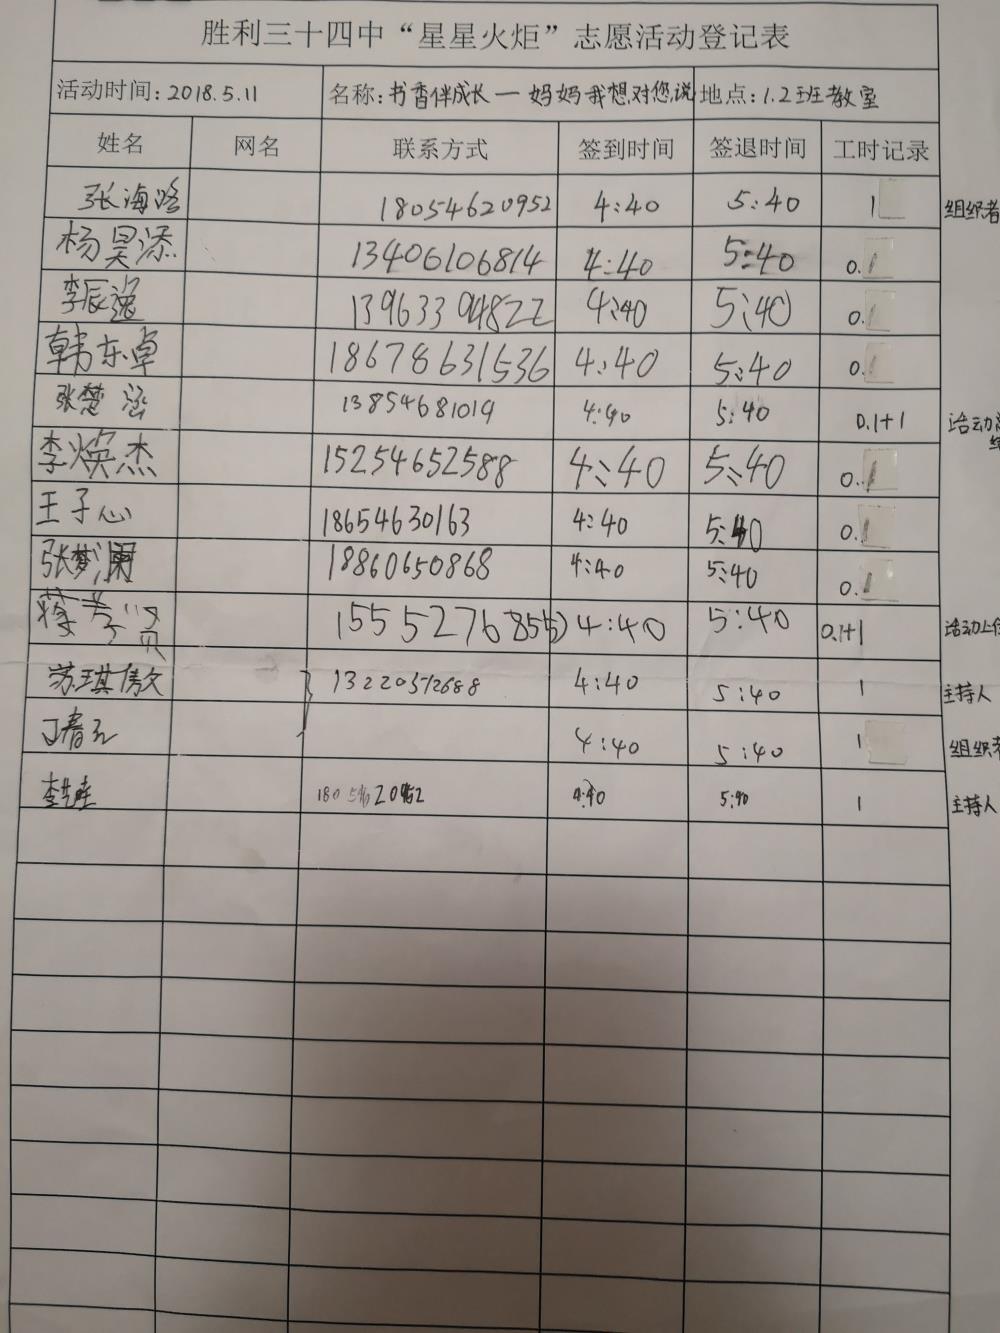 胜利三十四中“星星火炬”志愿活动登记表
活动时间:2018.5.11 名称:书香伴成长一妈妈我想对您说 地点:1.2班教室
姓名 网名 联系方式 签到时间 签退时间 工时记录
张海路 18054620952 4:40 5:40 1 组织者
杨昊添 13406106814 4:40 5:40 0.1
李辰逸 13963394822 4:40 5:40 0.1
韩东卓 18678631536 4:40 5:40 0.1
张楚涵 13854681019 4:40 5:40 0.1+1 活动
李焕杰 15254652588 4:40 5:40 0.1
王子心 18654630163 4:40 5:40 0.1
张梦澜 18860650868 4:40 5:40 0.1
15552768553 4:40 5:40 0.1+1 活动上传
苏琪傲 13220572688 4:40 5:40 1 主持人
丁春 4:40 5:40 1 组织者
李 4:40 5:40 1 主持人